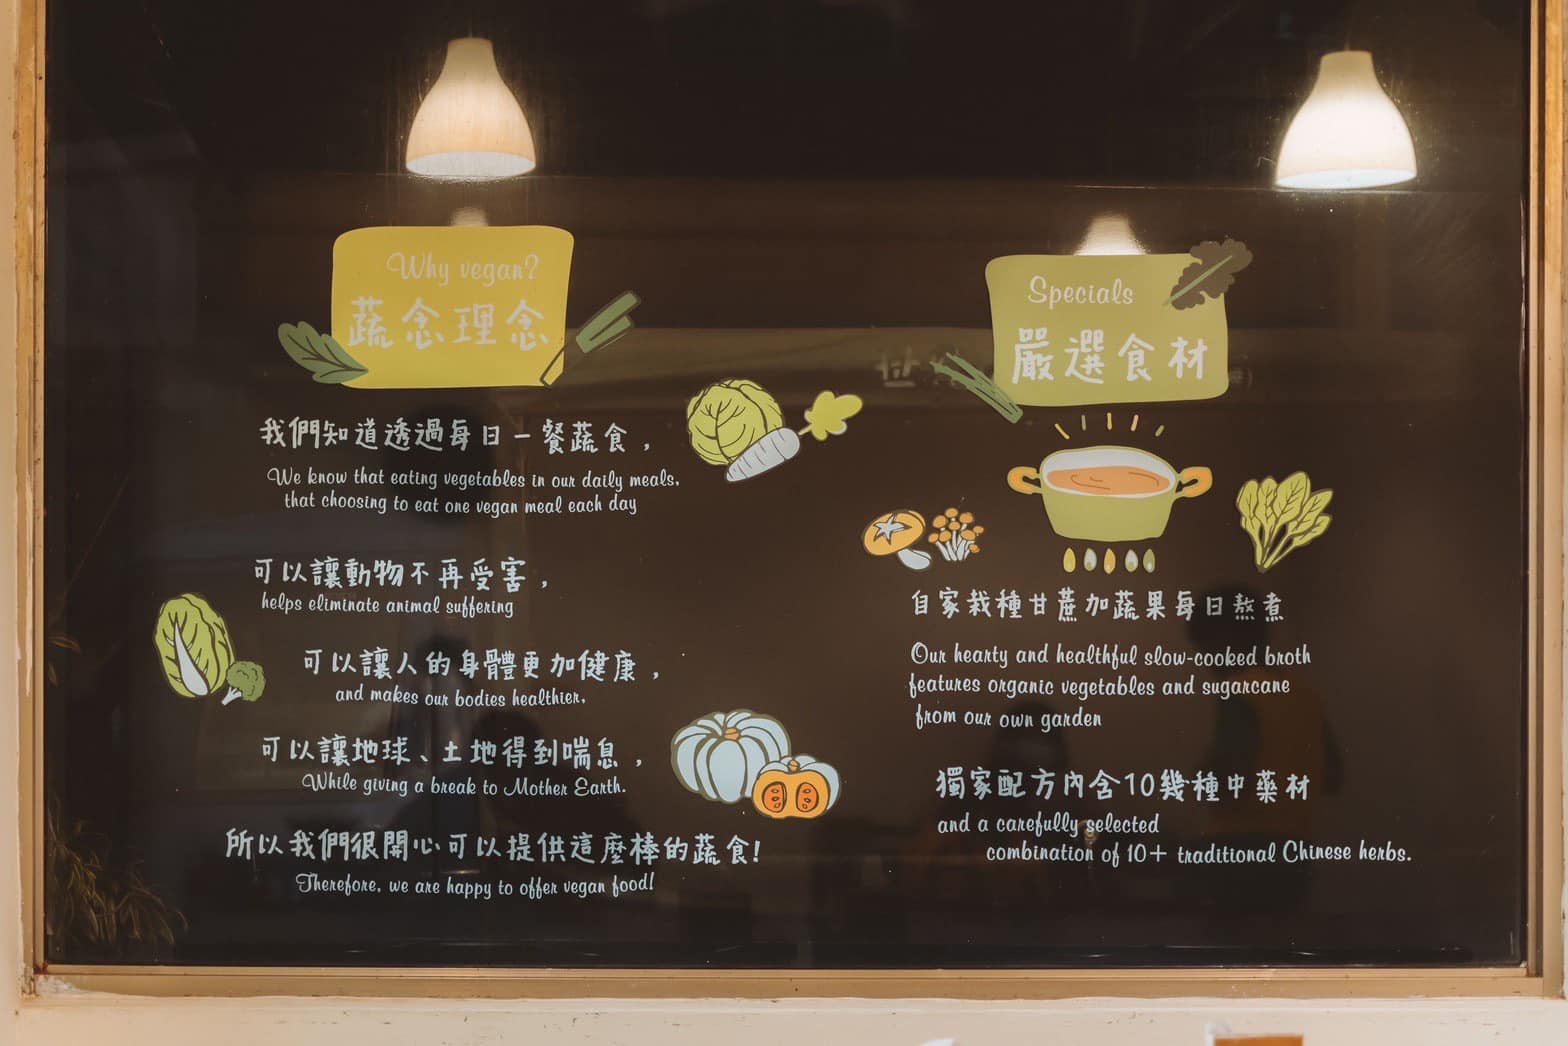 Why vegan?
蔬念理念
我們知道透過每日一餐蔬食，
We know that eating vegetables in our daily meals,
that choosing to eat one vegan meal each day
可以讓動物不再受害，
helps eliminate animal suffering
可以讓人的身體更加健康，
and makes our bodies healthier,
可以讓地球、土地得到喘息，
While giving a break to Mother Earth.
所以我們很開心可以提供這麼棒的蔬食!
Therefore, we are happy to offer vegan food!
Specials
嚴選食材
自家栽種甘蔗加蔬果每日熬煮
Our hearty and healthful slow-cooked broth
features organic vegetables and sugarcane
from our own garden
獨家配方內含10幾種中藥材
and a carefully selected
combination of 10+ traditional Chinese herbs.